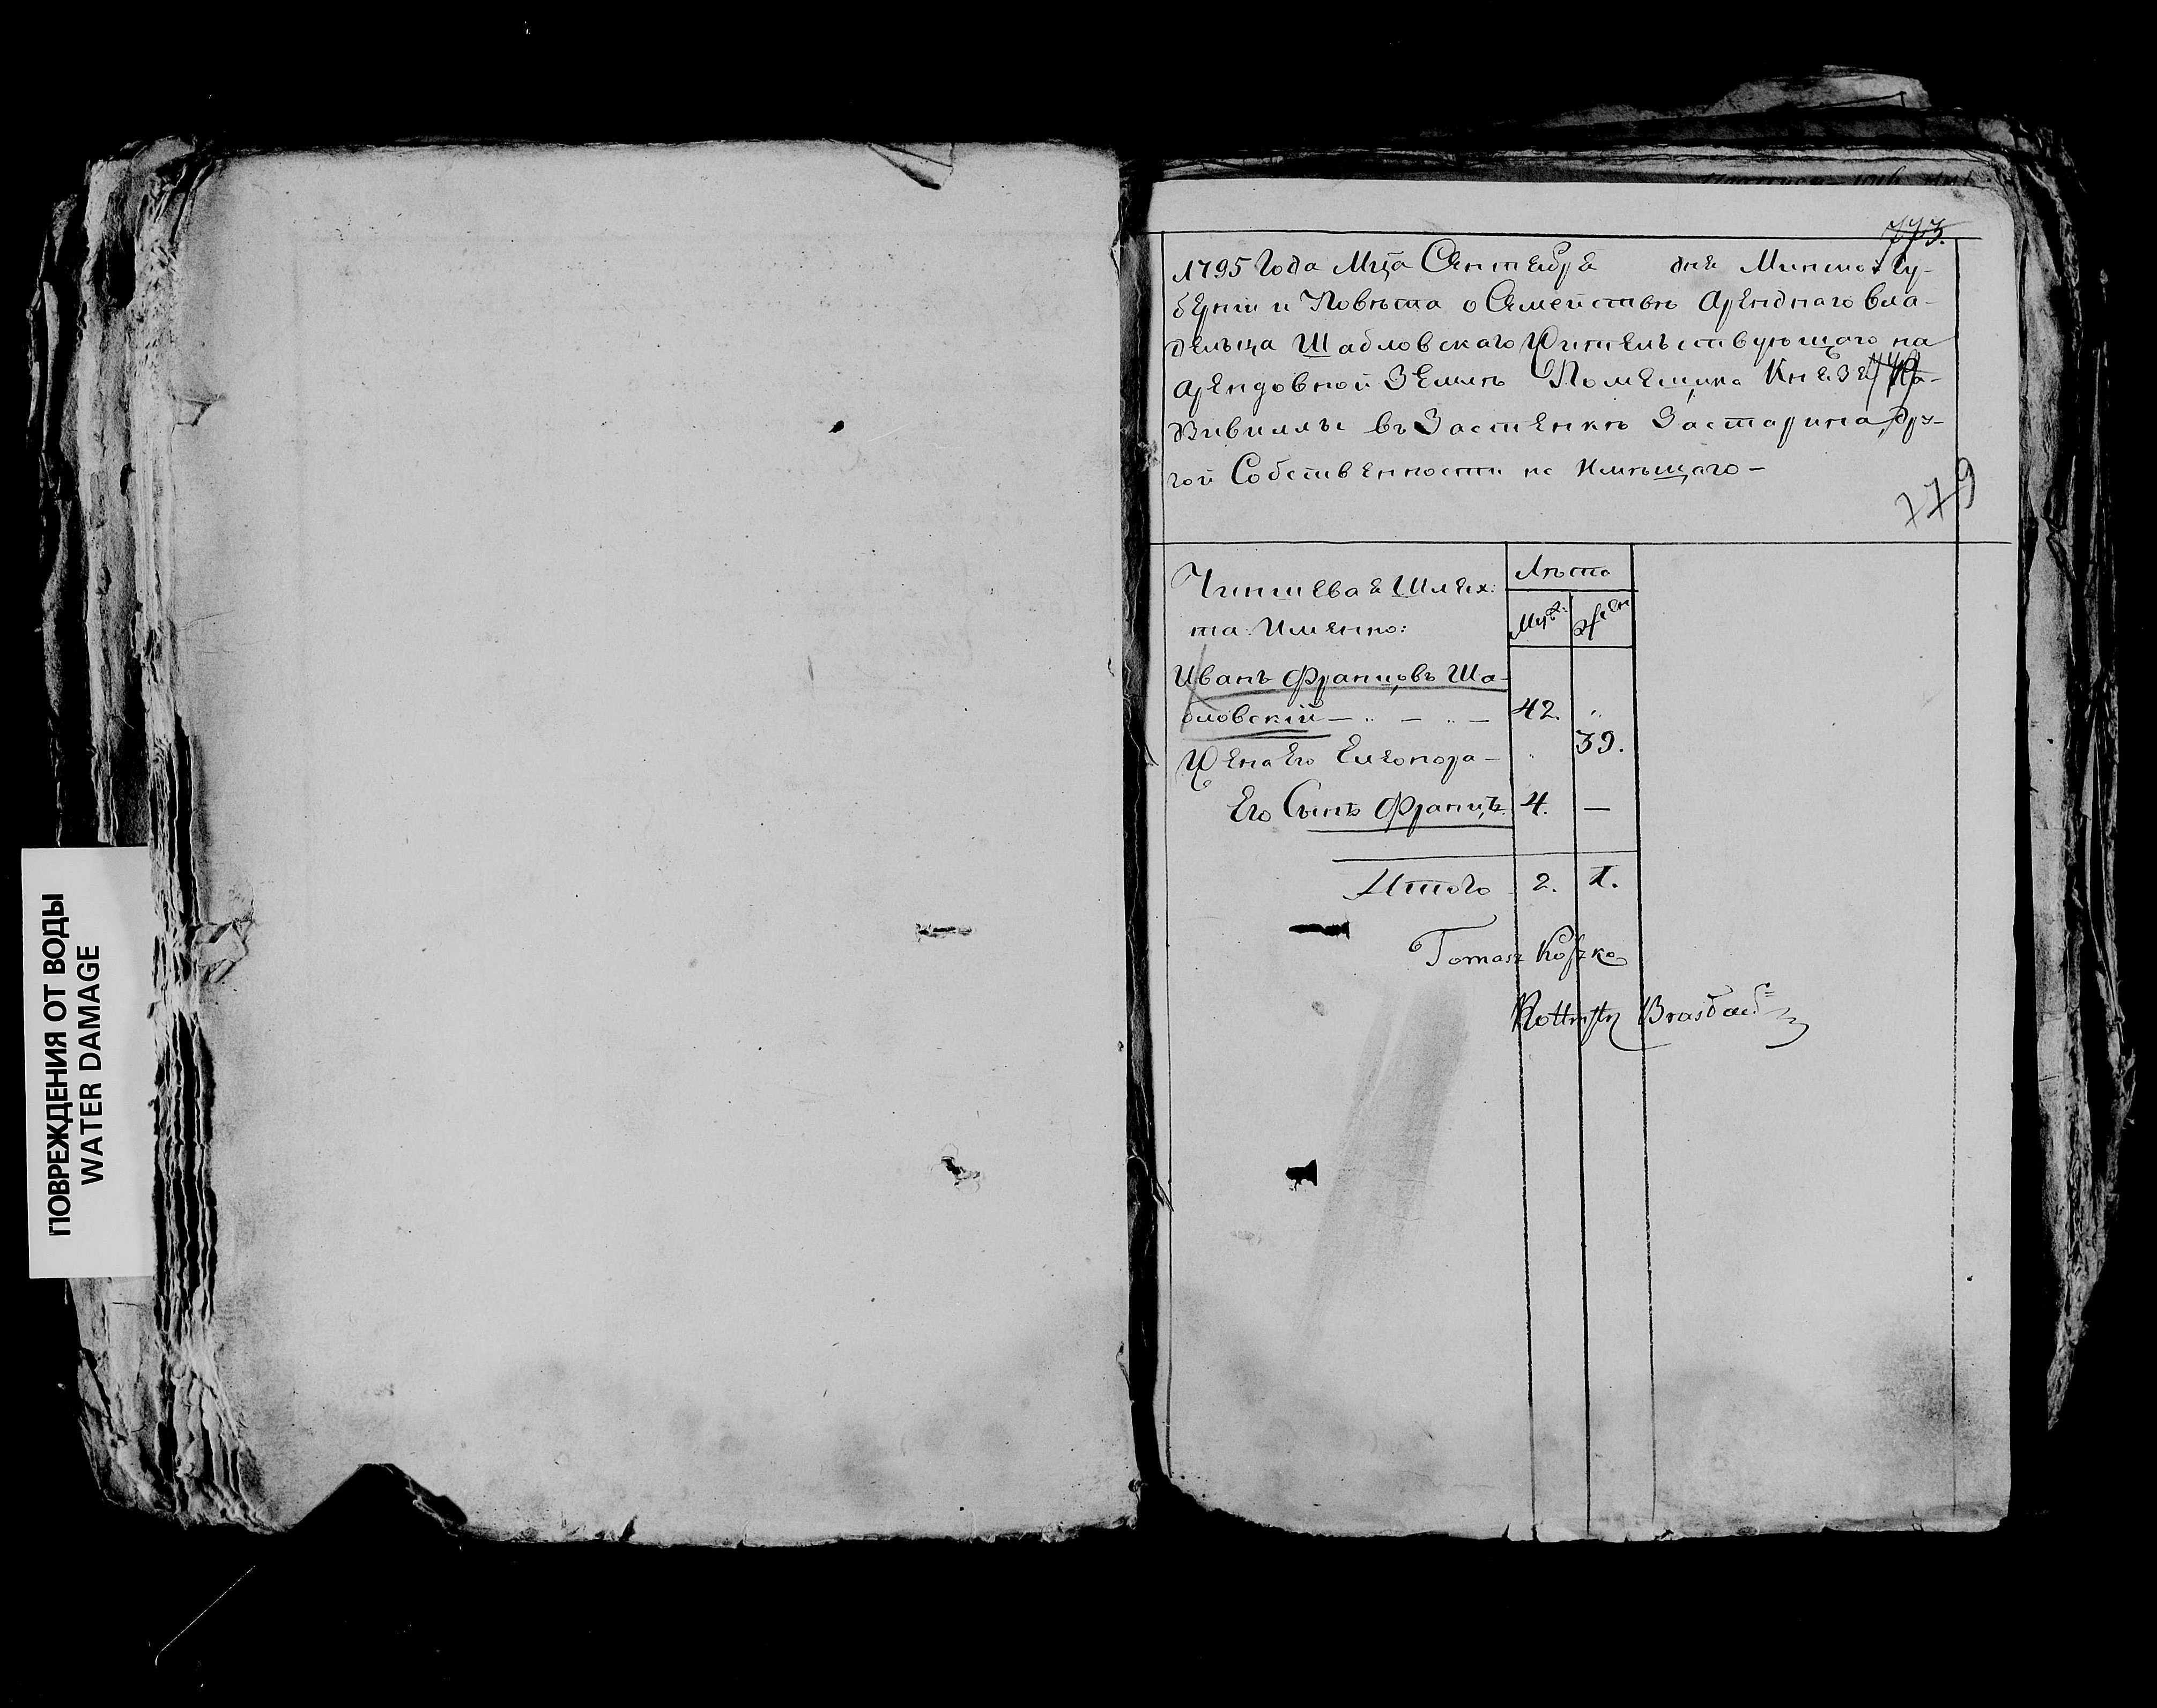 ПОВРЕЖДЕНИЯ ОТ ВОДЫ
WATER DAMAGE
773.
1795 Года Мца Сентебре дне Минской Гу-
берніи и Повѣта о Семействѣ Арендного вла-
дельца Шабловскаго Жителъствующаго на
арендовной Землѣ Помещика Кнезе Ра-
дзивиллы въ Застенкѣ Застарина, дру-
гой Собственности не Имѣщаго —
779
Чиншевае Шлех:
та: Именно:
Лѣта
Муж:
Жен
Иванъ Францовъ Ша-
бловскій — „ — „ — 42. „
Жена Его Елеонора — „ 39.
Его Сынъ Францъ 4. —
Итого 2. 1.
Tomasz